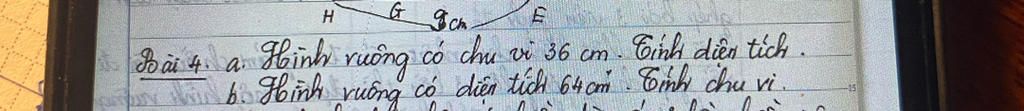 H G 9cm E
Bài 4. a. Hình vuông có chu vi 36 cm. Tính diện tích.
b. Hình vuông có diện tích 64cm². Tính chu vi.